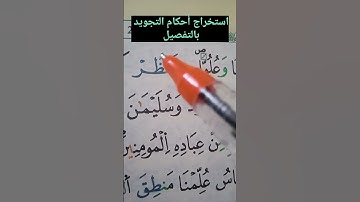 استخراج أحكام التجويد
بالتفصيل
وَعُلُوّاٗ
وَسُلَيْمَٰنَ
مِّنْ عِبَادِهِ اِ۬لْمُومِنِينَ
عُلِّمْنَا مَنطِقَ